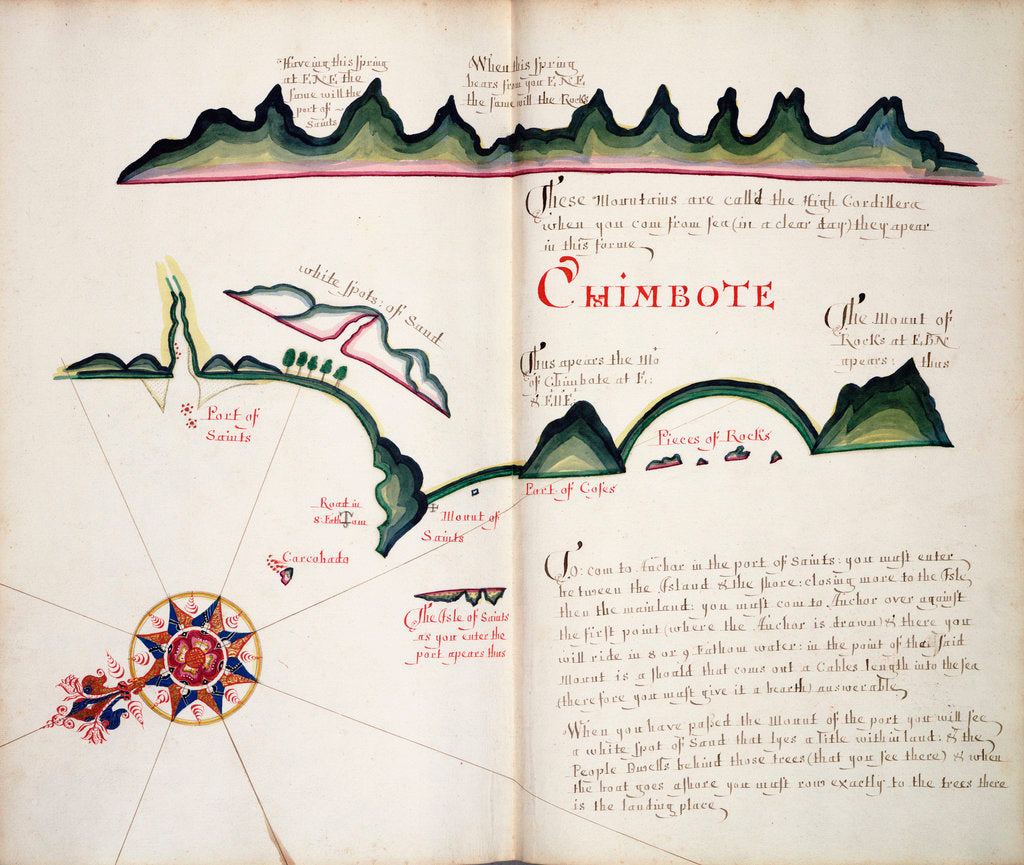 Haveing this spring
at ENE the
same will the
port of
Saints
When this spring
bears from you ENE
the same will the Rocks
These Mountains are calld the High Cordillera
when you com from sea (in a clear day) they apear
in this forme
CHIMBOTE
white spots: of Sand
The Mount of
Rocks at EBN
apears: thus
Thus apears the Mo
of Chimbote at E:
& ENE
Port of
Saints
Pieces of Rocks
Port of Coses
Road in
8: Fathom
Mount of
Saints
Carcohado
The Isle of Saints
as you enter the
port apears thus
To: com to Anchor in the port of Saints: you must enter
between the Island & the shore: closing more to the Isle
then the mainland: you must com to Anchor over against
the first point (where the Anchor is drawn) & there you
will ride in 8 or 9 fathom water: in the point of the said
Mount is a shoald that coms out a Cables length into the sea
(therefore you must give it a bearth) answerable
When you have passed the Mount of the port you will see
a white spot of Sand that lyes a litle within land: & the
People Dwells behind those trees (that you see there) & when
the boat goes ashore you must row exactly to the trees there
is the landing place